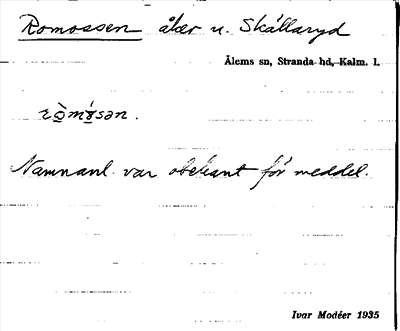 Romossen åker u. Skällaryd
Ålems sn, Stranda hd, Kalm. l.
rò̱mó̱sən.
Namnanl. var obekant för meddel.
Ivar Modéer 1935